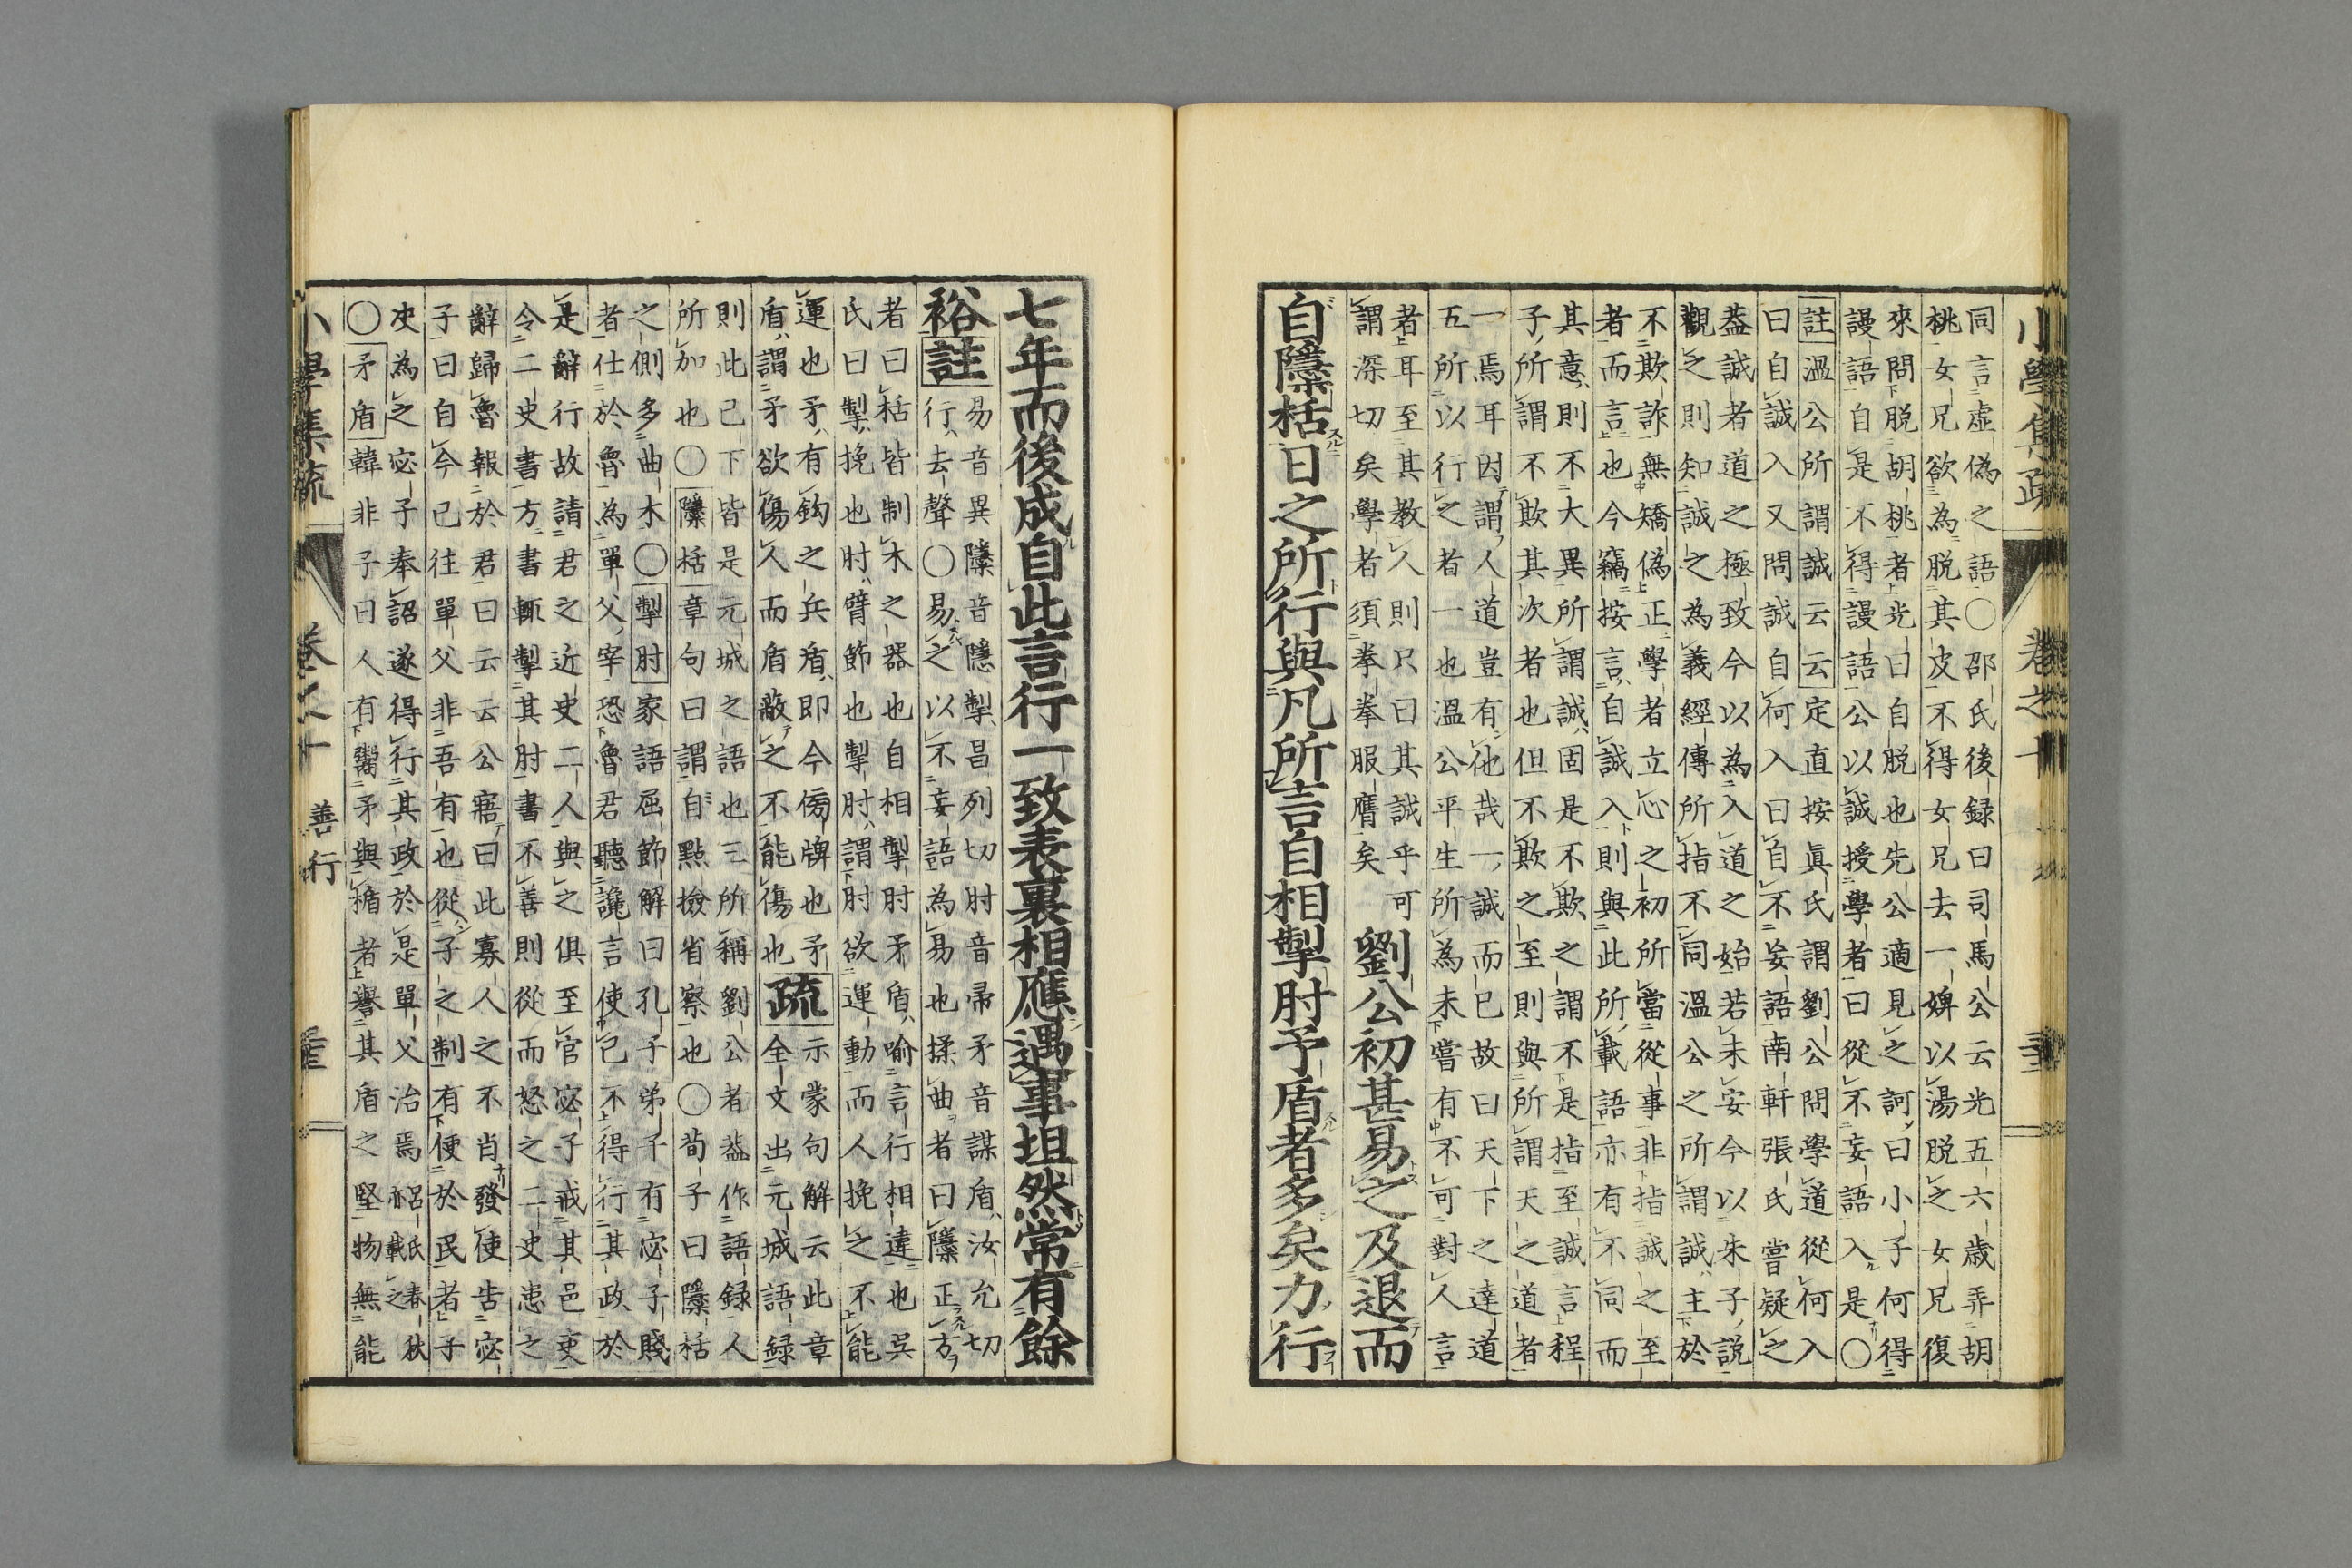 小學集疏 卷之十
同言虛偽之語〇邵氏後録曰司馬公云光五六歳弄胡
桃女兄欲為脱其皮不得女兄去一婢以湯脱之女兄復
來問脱胡桃者光曰自脱也先公適見之訶曰小子何得
謾語自是不得謾語公以誠授學者曰從不妄語入是〇
註溫公所謂誠云云定直按眞氏謂劉公問學道從何入
曰自誠入又問誠自何入曰自不妄語南軒張氏嘗疑之
葢誠者道之極致今以為入道之始若未安今以朱子説
觀之則知誠之為義經傳所指不同溫公之所謂誠主於
不欺詐無矯偽正學者立心之初所當從事非指誠之至
者而言也今竊按言自誠入則與此所載語亦有不同而
其意則不大異所謂誠固是不欺之謂不是指至誠言程
子所謂不欺其次者也但不欺之至則與所謂天之道者
一焉耳因謂人道豈有他哉一誠而已故曰天下之達道
五所以行之者一也溫公平生所為未嘗有不可對人言
者耳至其教人則只曰其誠乎可
謂深切矣學者須拳拳服膺矣
劉公初甚易之及退而
自隱栝日之所行與凡所言自相掣肘予盾者多矣力行
七年而後成自此言行一致表裏相應遇事坦然常有餘
裕註
易音異隱音隱掣昌列切肘音帚矛音謀盾汝允切
行去聲〇易之以不妄語為易也揉曲者曰隱正方
者曰栝皆制木之器也自相掣肘矛盾喻言行相違也呉
氏曰掣挽也肘臂節也掣肘謂肘欲運動而人挽之不能
運也矛有鈎之兵盾即今傍牌也矛
盾謂矛欲傷人而盾蔽之不能傷也
疏
示蒙句解云此章
全文出元城語録
則此已下皆是元城之語也三所稱劉公者葢作語録人
所加也〇隱栝章句曰謂自點撿省察也〇荀子曰隱栝
之側多曲木〇掣肘家語屈節解曰孔子弟子有宓子賤
者仕於魯為單父宰恐魯君聽讒言使己不得行其政於
是辭行故請君之近史二人與之俱至官宓子戒其邑吏
令二史書方書輒掣其肘書不善則從而怒之二史患之
辭歸魯報於君曰云云公寤曰此寡人之不肖發使告宓
子曰自今已往單父非吾有也從子之制有便於民者子
决為之宓子奉詔遂得行其政於是單父治焉呂氏春秋亦載之
〇矛盾韓非子曰人有鬻矛與楯者譽其盾之堅物無能
小學集疏 卷之十 善行